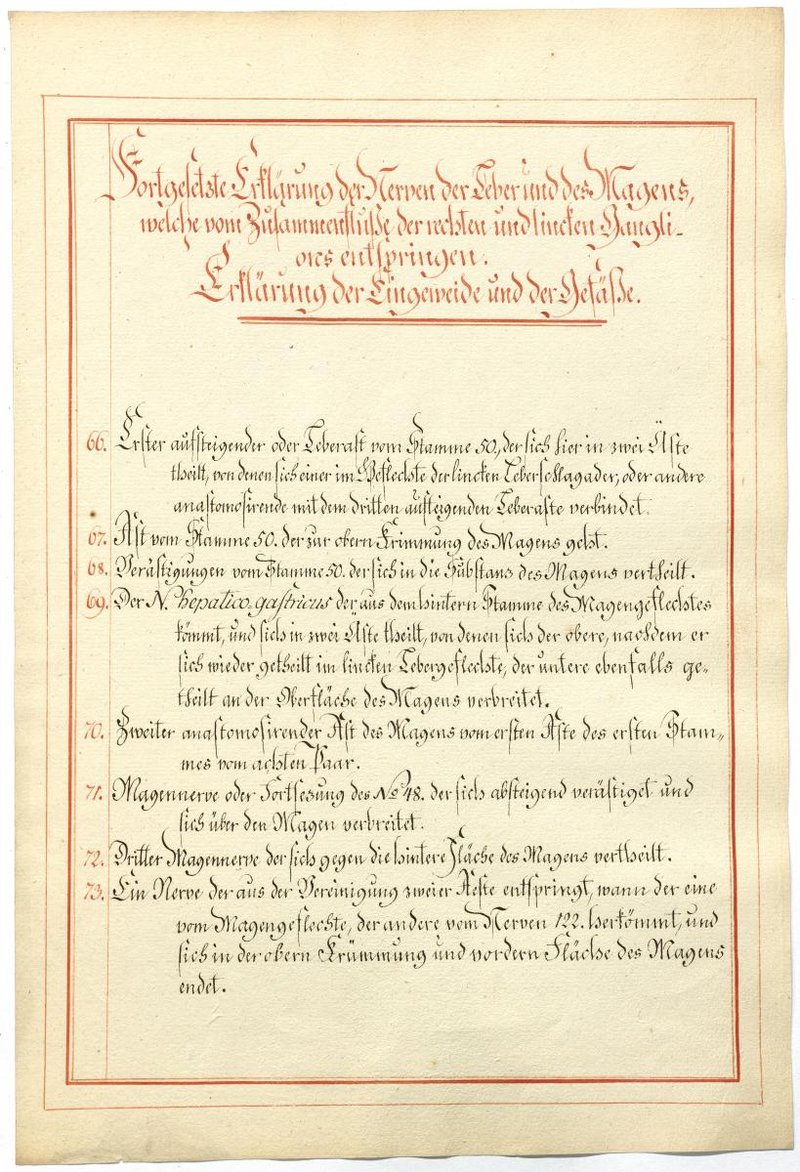 Fortgesetzte Erklärung der Nerven der Leber und des Magens,
welche vom Zusammenfluße der rechten und lincken Gangli-
ons entspringen.
Erklärung der Eingeweide und der Gefäße.
66. Erster aufsteigender oder Leberast vom Stamme 50., der sich hier in zwei Äste
theilt, von denen sich einer im Geflechte der lincken Leberschlagader, oder andere
anastomosirende mit dem dritten aufsteigenden Leberaste verbindet.
67. Ast vom Stamme 50. der zur obern Krimmung des Magens geht.
68. Verästigungen vom Stamme 50. der sich in die Substanz des Magens vertheilt.
69. Der N. hepatico gastricus der aus dem hintern Stamme des Magengeflechtes
kömmt, und sich in zwei Äste theilt, von denen sich der obere, nachdem er
sich wieder getheilt im lincken Lebergeflechte, der untere ebenfalls ge-
theilt an der Oberfläche des Magens verbreitet.
70. Zweiter anastomosirender Ast des Magens vom ersten Aste des ersten Stam-
mes vom achten Paar.
71. Magennerve oder Fortsezung des No 48. der sich absteigend verästiget und
sich über den Magen verbreitet.
72. Dritter Magennerve der sich gegen die hintere Fläche des Magens vertheilt.
73. Ein Nerve der aus der Vereinigung zweier Aeste entspringt, wann der eine
vom Magengeflechte, der andere vom Nerven 122. herkömmt, und
sich in der obern Krümmung und vordern Fläche des Magens
endet.